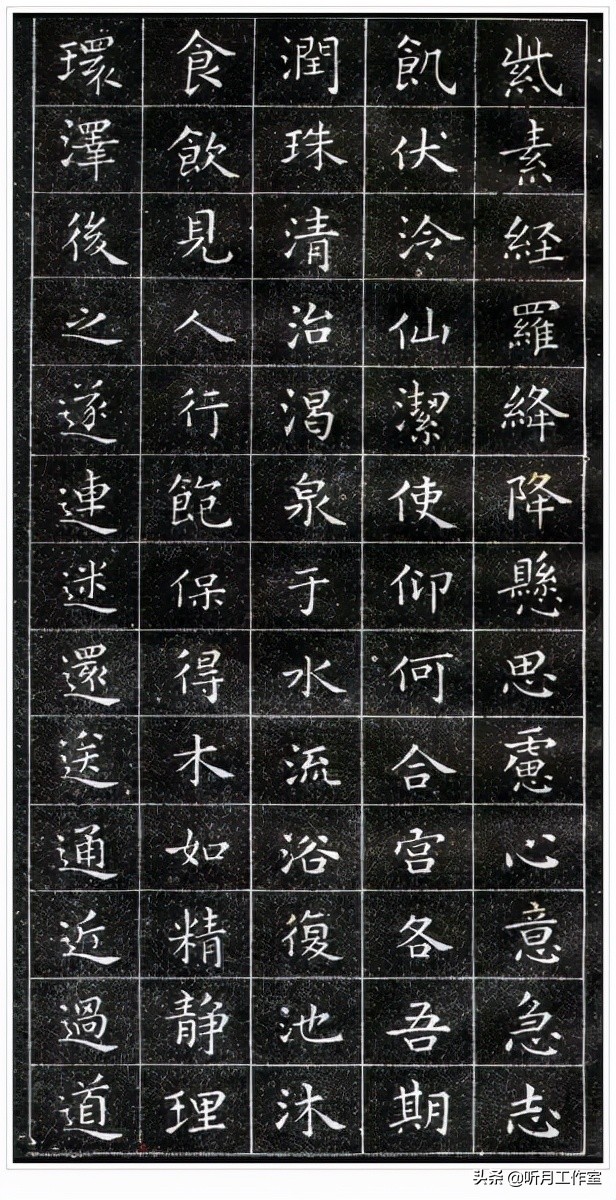 紫素経羅絳降懸思慮心意急志
飢伏泠仙潔使仰何合宮各吾期
潤珠清治渴泉于水流浴復池沐
食飲見人行飽保得木如精静理
環澤後之遂連迷還送通近過道
头条 @听月工作室